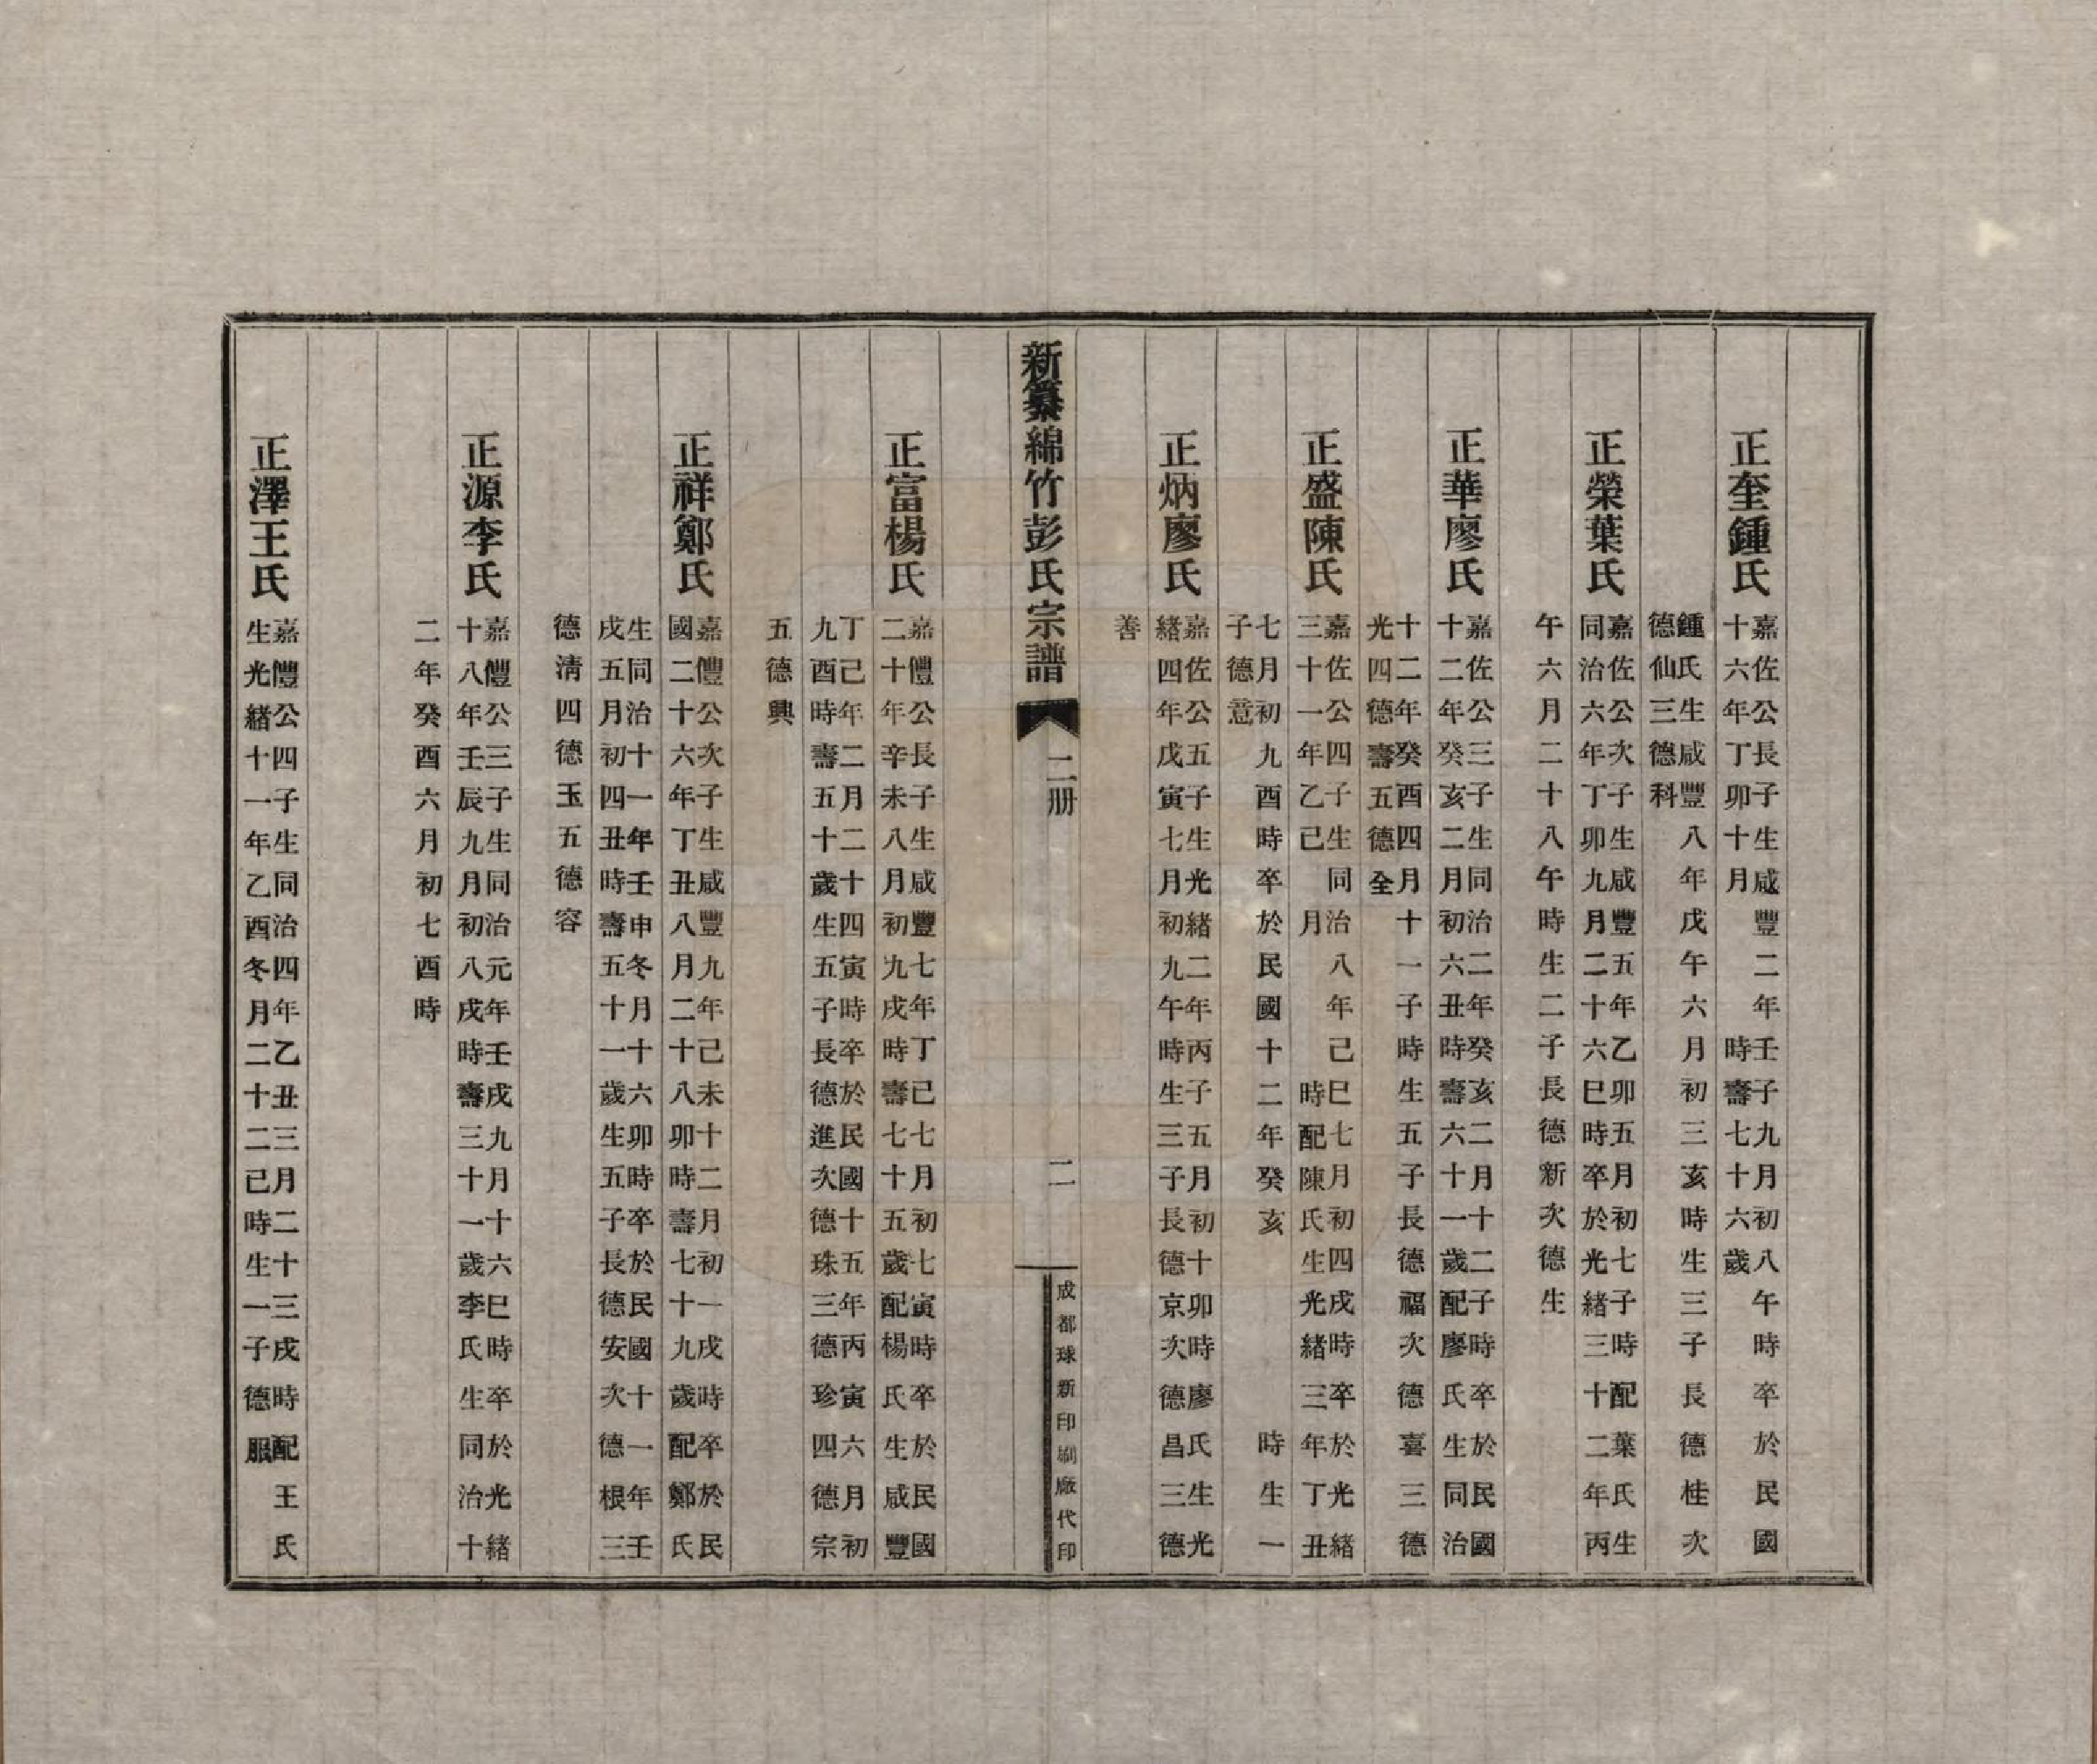 正奎鍾氏
嘉佐公長子生咸豐二年壬子九月初八午時卒於民國
十六年丁卯十月時壽七十六歲
鍾氏生咸豐八年戊午六月初三亥時生三子長德桂次
德仙三德科
正榮葉氏
嘉佐公次子生咸豐五年乙卯五月初七子時配葉氏生
同治六年丁卯九月二十六巳時卒於光緒三十二年丙
午六月二十八午時生二子長德新次德生
正華廖氏
嘉佐公三子生同治二年癸亥二月十二子時卒於民國
十二年癸亥二月初六丑時壽六十一歲配廖氏生同治
十二年癸酉四月十一子時生五子長德福次德喜三德
光四德壽五德全
正盛陳氏
嘉佐公四子生同治八年己巳七月初四戌時卒於光緒
三十一年乙己月時配陳氏生光緒三年丁丑
七月初九酉時卒於民國十二年癸亥時生一
子德意
正炳廖氏
嘉佐公五子生光緒二年丙子五月初十卯時廖氏生光
緒四年戊寅七月初九午時生三子長德京次德昌三德
善
新纂綿竹彭氏宗譜
二册
二
成都球新印刷廠代印
正富楊氏
嘉僼公長子生咸豐七年丁己七月初七寅時卒於民國
二十年辛未八月初九戌時壽七十五歲配楊氏生咸豐
丁己年二月二十四寅時卒於民國十五年丙寅六月初
九酉時壽五十二歲生五子長德進次德珠三德珍四德宗
五德興
正祥鄭氏
嘉僼公次子生咸豐九年己未十二月初一戌時卒於民
國二十六年丁丑八月二十八卯時壽七十九歲配鄭氏
生同治十一年壬申冬月十六卯時卒於民國十一年壬
戌五月初四丑時壽五十一歲生五子長德安次德根三
德淸四德玉五德容
正源李氏
嘉僼公三子生同治元年壬戌九月十六巳時卒於光緒
十八年壬辰九月初八戌時壽三十一歲李氏生同治十
二年癸酉六月初七酉時
正澤王氏
嘉僼公四子生同治四年乙丑三月二十三戌時配王氏
生光緒十一年乙酉冬月二十二已時生一子德服